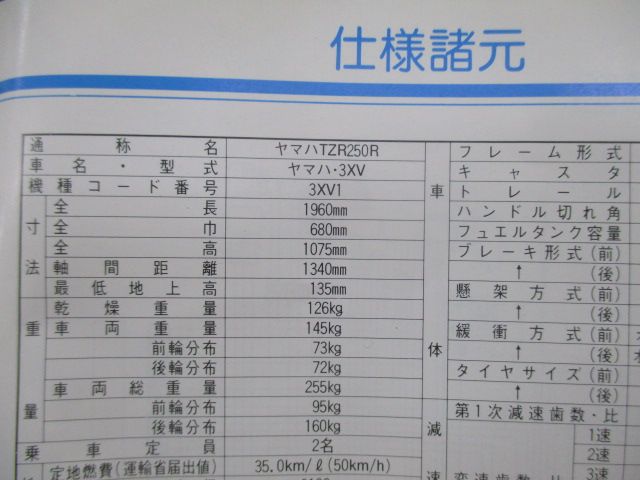 仕様諸元
通称名 ヤマハTZR250R
車名・型式 ヤマハ・3XV
機種コード番号 3XV1
寸法
全長 1960mm
全巾 680mm
全高 1075mm
軸間距離 1340mm
最低地上高 135mm
重量
乾燥重量 126kg
車両重量 145kg
前輪分布 73kg
後輪分布 72kg
車両総重量 255kg
前輪分布 95kg
後輪分布 160kg
乗車定員 2名
定地燃費(運輸省届出値) 35.0km/ℓ(50km/h)
車体
フレーム形式
キャスタ
トレール
ハンドル切れ角
フュエルタンク容量
ブレーキ形式(前)
↑(後)
懸架方式(前)
↑(後)
緩衝方式(前)
↑(後)
タイヤサイズ(前)
↑(後)
減速
第1次減速歯数・比
1速
2速
3速
変速歯数・比